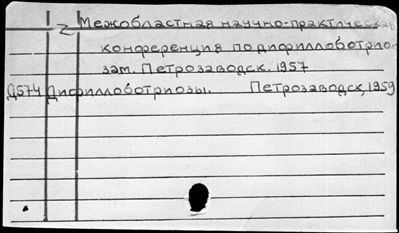 Межобластная научно-практическая
конференция по дифиллоботрио-
зам. Петрозаводск. 1957
Д574 Дифиллоботриозы. Петрозаводск, 1959